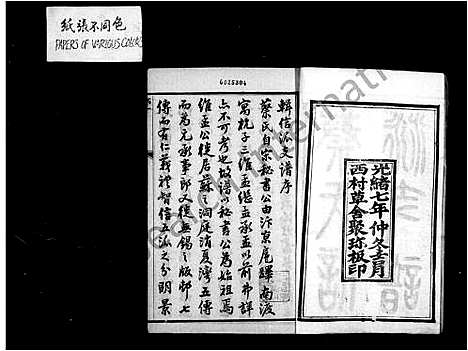 紙張不同色
PAPERS OF VARIOUS COLORS
6025304
光緒七年仲冬吉月
西村草舍聚珍板印
輯信派支譜序
蔡氏自宗秘書公由汴京扈蹕南渡
寓杭子三維孟繼孟承孟以前弗詳
亦不可考也故譜以秘書公為始祖焉
維孟公徙居蘇之洞庭消夏灣五傳
而為元承事郎又徙無錫之版邨七
傳而有仁義禮智信五派之分明景